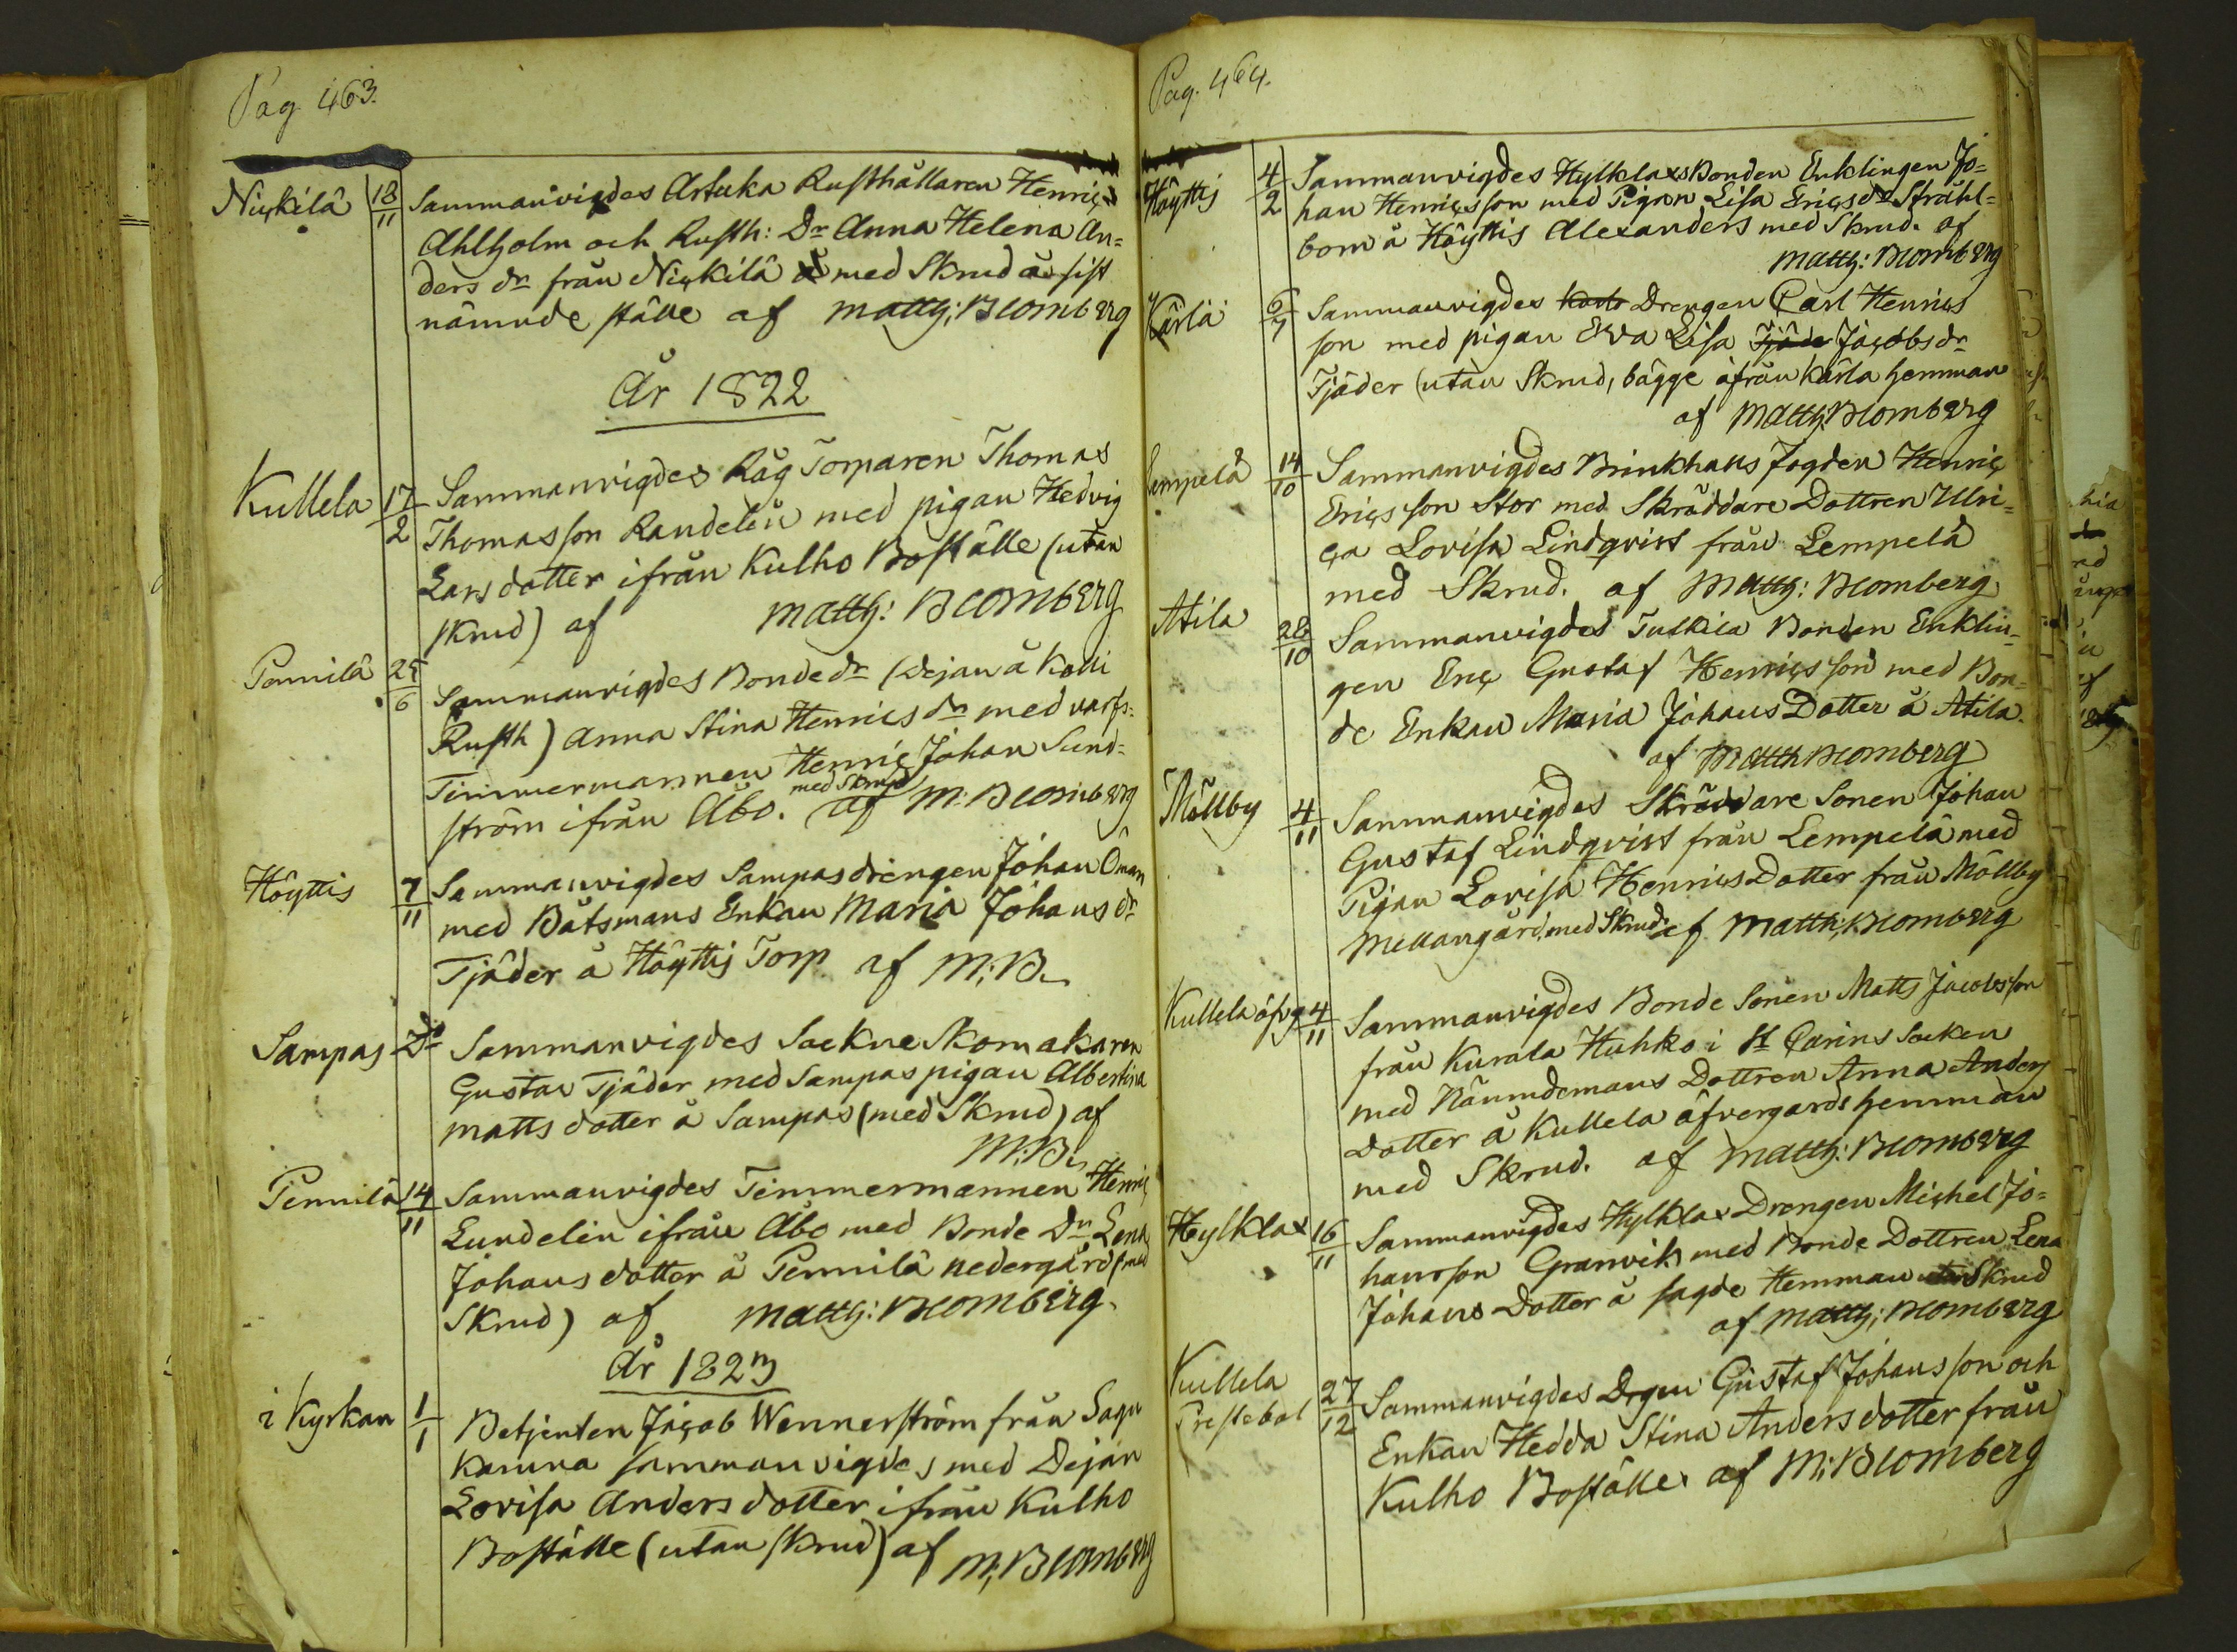 Pag. 463.
Nickilä 18/11 Sammanvigdes Artuka Rusthållaren Henric
Ahlholm och Rusth: Dr Anna Helena An=
ders dr från Nickilä med Skrud å sist
nämnde ställe af Matth: Blomberg
År 1822
Kullela 17/2 Sammanvigdes Råg Torparen Thomas
Thomasson Randelin med pigan Hedvig
Lars dotter ifrån Kulho Boställe (utan
skrud) af Matth: Blomberg
Pennilä 25/6 Sammanvigdes Bonde dr (Dejan å
Rusth) Anna Stina Henrics dr med varfs=
Timmermannen Henric Johan Sund=
ström ifrån Åbo. med Skrud af M: Blomberg
Höyttis 7/11 Sammanvigdes Sampas drengen Johan Öman
med Båtsmans Enkan Maria Johans dr
Tjäder å Höyttis Torp af M: B.
Sampas Do Sammanvigdes Sockne Skomakaren
Gustav Tjäder med Sampas pigan Albertina
Matts dotter å Sampas (med Skrud) af
M: B.
Pennilä 14/11 Sammanvigdes Timmermannen Henric
Lundelin ifrån Åbo med Bonde Dr Lena
Johans dotter å Pennilä nedergård (med
Skrud) af Matth: Blomberg.
År 1823
i Kyrkan 1/1 Betjenten Jacob Wennerström från Sagu
Karuna sammanvigdes med Dejan
Lovisa Anders dotter ifrån Kulho
Boställe (utan skrud) af M: Blomberg
Pag. 464.
Höyttis 4/2 Sammanvigdes Hylklax Bonden Enklingen Jo=
han Henricsson med Pigan Lisa Erics dr Stråhl=
bom å Höyttis Alexanders med Skrud. af
Matth: Blomberg
Kärlä 6/7 Sammanvigdes Drengen Carl Henrics
son med pigan Eva Lisa Tjäde Jacobs dr
Tjäder (utan Skrud, bägge åfrån Kärla hemman
af Matth: Blomberg
Lempelä 14/10 Sammanvigdes Brinkhalls Fogden Henric
Ericsson Stor med Skräddare Dottren Ulri=
ca Lovisa Lindqvist från Lempelä
med Skrud. af Matth: Blomberg
Atila 28/10 Sammanvigdes Tuskila Bonden Enklin=
gen Eric Gustaf Henricsson med Bon=
de Enkan Maria Johans Dotter å Atila.
af Matth Blomberg
Möllby 4/11 Sammanvigdes Skräddare Sonen Johan
Gustaf Lindqvist från Lempelä med
Pigan Lovisa Henrics Dotter från Möllby
Mellangård, med Skrud. af Matth: Blomberg
Kullela öfvg 4/11 Sammanvigdes Bonde Sonen Matts Jacobsson
från Kurala Huhko i St Carins Socken
med Nämndemans Dottren Anna Anders
dotter å Kullela öfvergards hemman
med Skrud. af Matth: Blomberg
Heylklax 16/11 Sammanvigdes Hylklax Drengen Michel Jo=
hansson Granvik med Bonde Dottren Lena
Johans Dotter å sagde Hemman utan Skrud
af Matth: Blomberg
Kullela
Prestebol 27/12 Sammanvigdes Drgen Gustaf Johansson och
Enkan Hedda Stina Anders dotter från
Kulho Boställe. af M: Blomberg